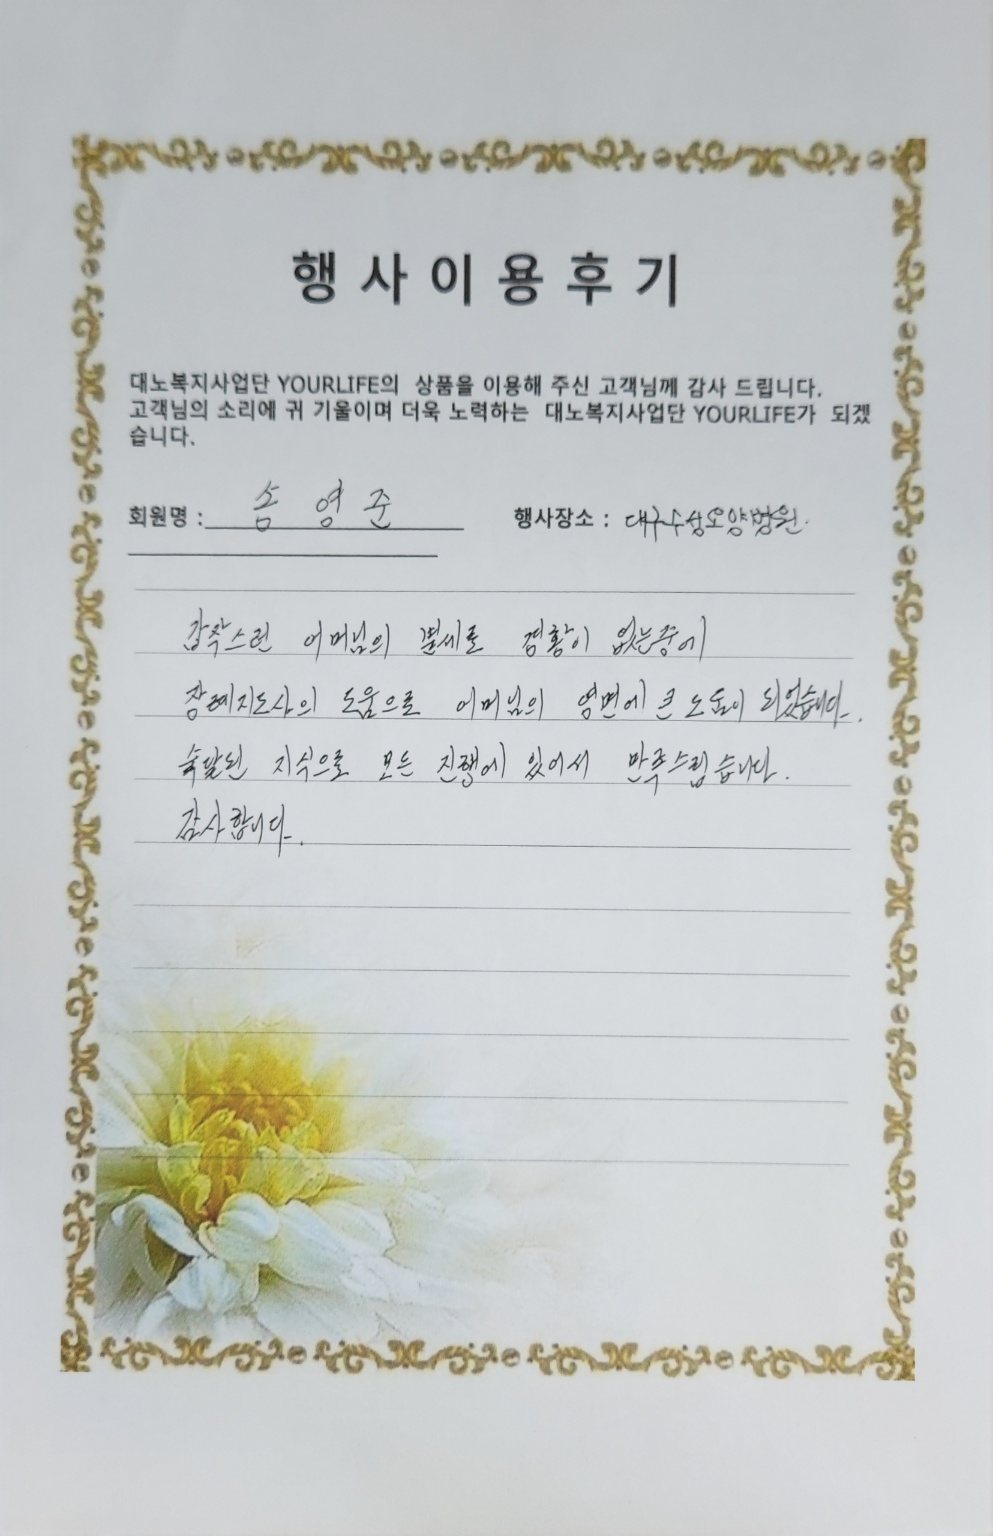 행사이용후기
대노복지사업단 YOURLIFE의 상품을 이용해 주신 고객님께 감사 드립니다.
고객님의 소리에 귀 기울이며 더욱 노력하는 대노복지사업단 YOURLIFE가 되겠
습니다.
회원명 : 손영준 행사장소 : 대구수성요양병원.
갑작스런 어머님의 별세로 경황이 없는중에
장례지도사의 도움으로 어머님의 영면에 큰 도움이 되었습니다.
숙달된 지식으로 모든 진행에 있어서 만족스럽습니다.
감사합니다.